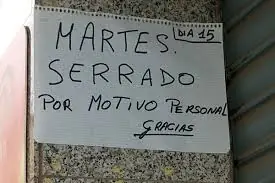 MARTES. DIA 15
SERRADO
POR MOTIVO PERSONAL
GRACIAS